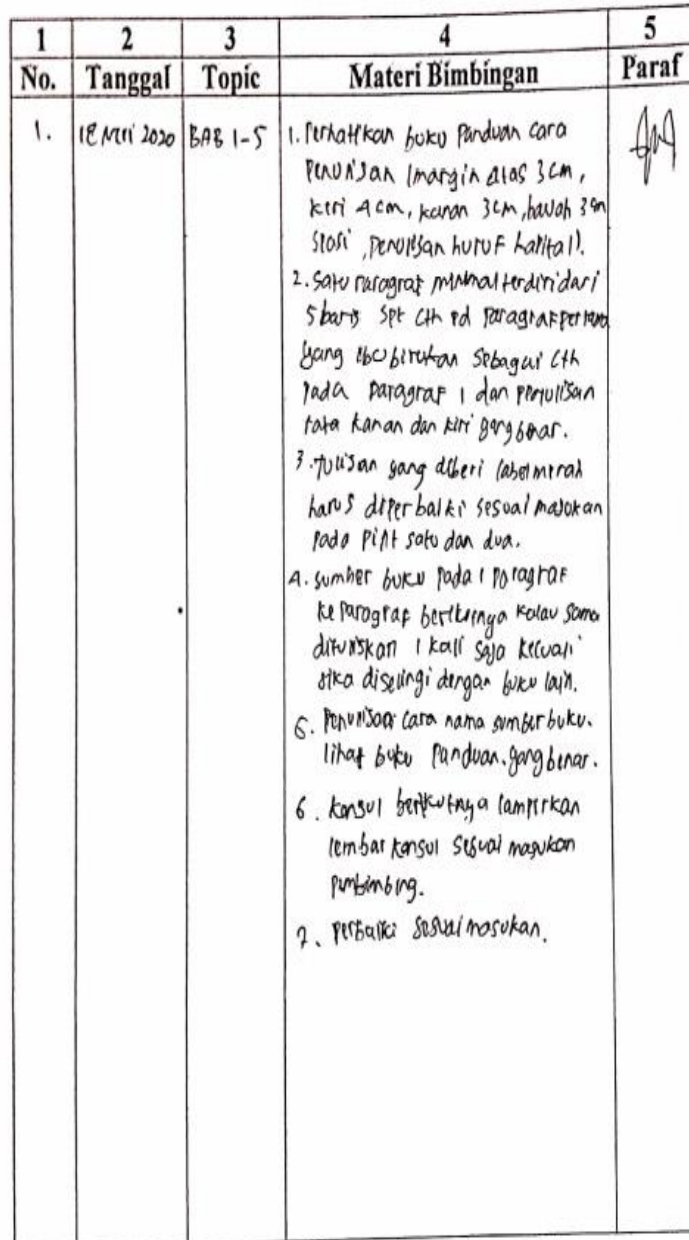 1 2 3 4 5
No. Tanggal Topic Materi Bimbingan Paraf
1. 18 Mei 2020 BAB 1-5 1. Perhatikan buku Panduan cara
Penulisan (margin atas 3cm,
kiri 4cm, kanan 3cm, bawah 3cm
spasi, penulisan huruf kapital).
2. Satu Paragraf minimal terdiri dari
5 baris spt cth pd Paragraf pertama
yang ibu birukan sebagai cth
pada paragraf 1 dan penulisan
rata kanan dan kiri yang benar.
3. Tulisan yang diberi label merah
harus diperbaiki sesuai masukan
pada point satu dan dua.
4. Sumber buku pada 1 paragraf
ke paragraf berikutnya kalau sama
dituliskan 1 kali saja kecuali
jika diselingi dengan buku lain.
5. Penulisan cara nama sumber buku.
lihat buku Panduan. yang benar.
6. Konsul berikutnya lampirkan
lembar konsul sesuai masukan
pembimbing.
7. Perbaiki sesuai masukan.